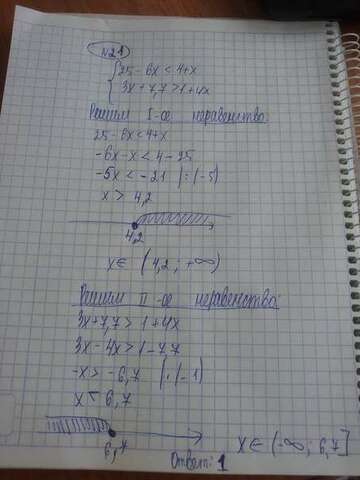 N21
{25-6x<4+x
3x+7,7>1+4x
Решим I-ое неравенство:
25-6x<4+x
-6x-x<4-25
-5x<-21 |:(-5)
x > 4,2
4,2
x∈ (4,2; +∞)
Решим II-ое неравенство:
3x+7,7>1+4x
3x-4x>1-7,7
-x>-6,7 |:(-1)
x < 6,7
6,7
x∈(-∞; 6,7]
Ответ: 1